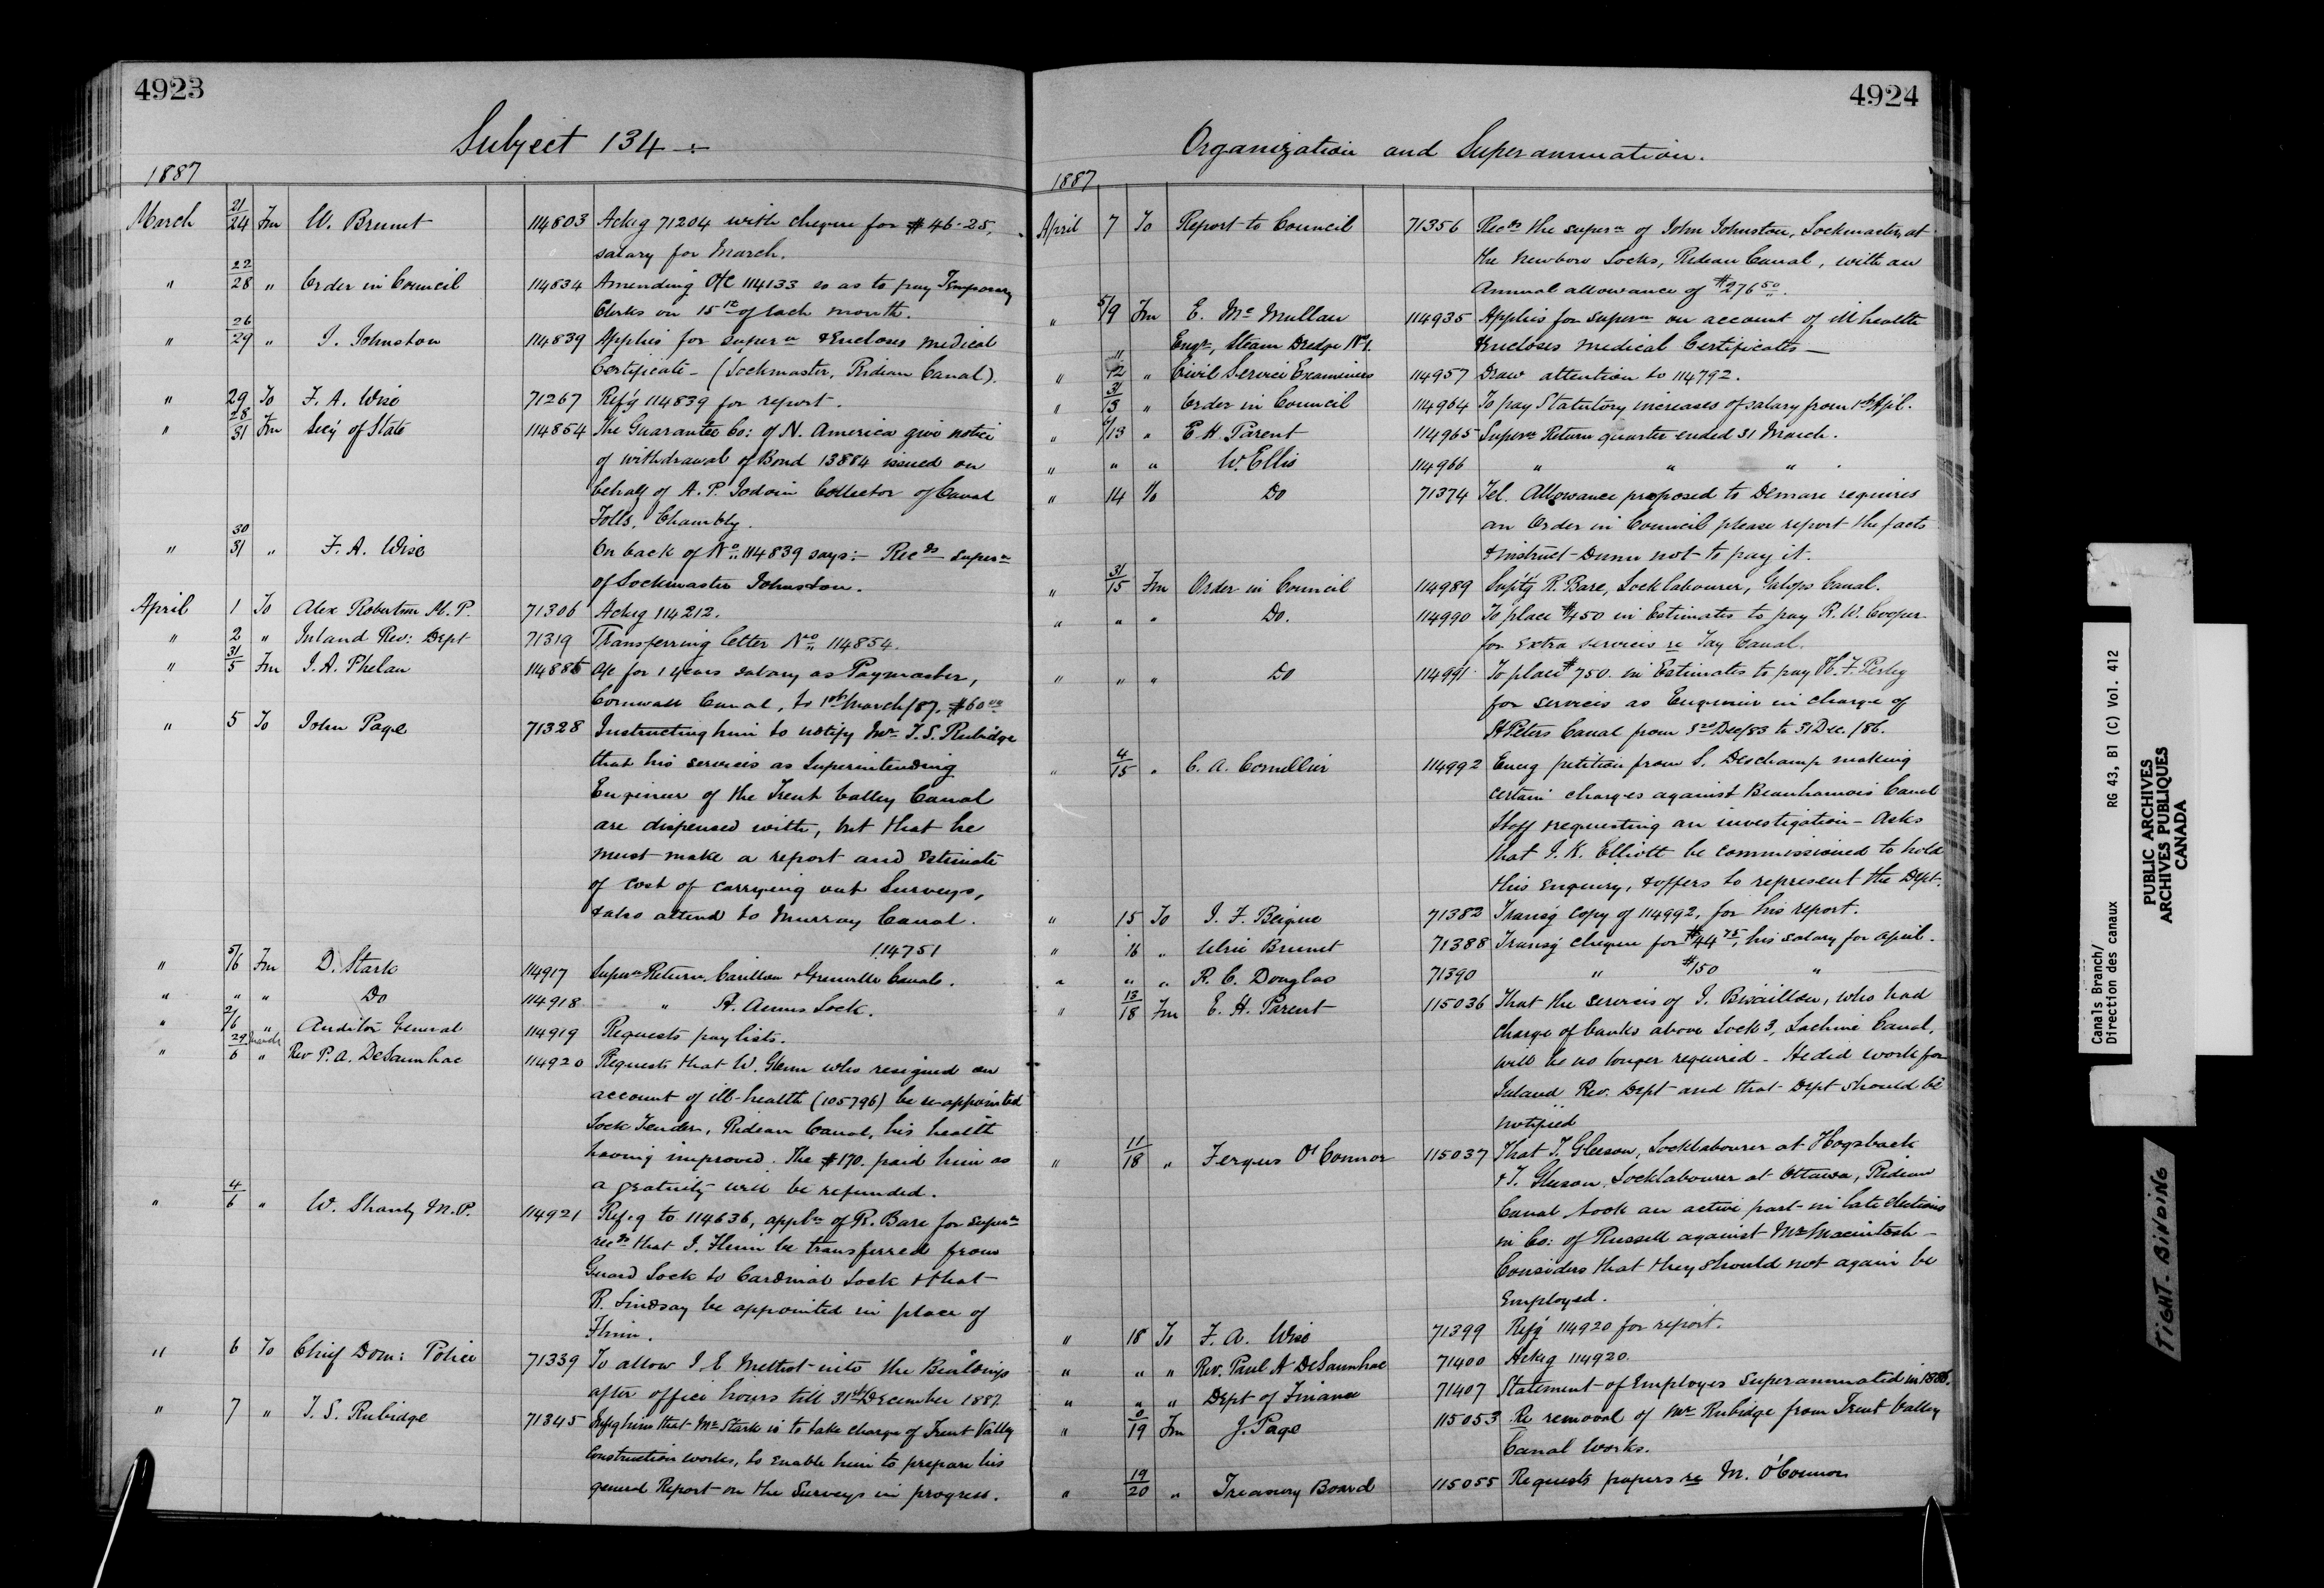 4923
Subject 134
1887
March 21/24 Fm W. Brunet 114803 Ackg 71204 with cheque for $46.25,
salary for March.
" 22/28 " Order in Council 114834 Amending O/C 114133 so as to pay Temporary
Clerks on 15th of each month.
" 26/29 " J. Johnston 114839 Applies for supern & Encloses Medical
Certificate - (Lockmaster, Rideau Canal).
" 29 To F. A. Wise 71267 Refg 114839 for report.
" 28/31 Fm Secy of State 114854 The Guarantee Co: of N. America give notice
of withdrawal of Bond 13884 issued on
behalf of A. P. Jodoin Collector of Canal
Tolls, Chambly.
" 30/31 " F. A. Wise On back of No. 114839 says:- Recds supern
of Lockmaster Johnston.
April 1 To Alex Robertson M. P. 71306 Ackg 114212.
" 2 " Inland Rev: Dept 71319 Transferring letter No. 114854.
" 31/5 Fm J. A. Phelan 114885 A/c for 1 years salary as Paymaster,
Cornwall Canal, to 1st March/87. $60.00
" 5 To John Page 71328 Instructing him to notify Mr T. S. Rubidge
that his services as Superintending
Engineer of the Trent Valley Canal
are dispensed with, but that he
must make a report and Estimate
of cost of carrying out Surveys,
& also attend to Murray Canal.
114751
" 5/6 Fm D. Stark 114917 Supern Return, Carillon & Grenville Canals.
" " " Do 114918 " St. Annes Lock.
" 2/6 " Auditor General 114919 Requests pay lists.
" 29 March/6 " Rev P. A. DeSaunhac 114920 Requests that W. Glenn who resigned on
account of ill-health (105796) be re-appointed
Lock Tender, Rideau Canal, his health
having improved. The $170. paid him as
a gratuity will be refunded.
" 4/6 " W. Shanly M.P. 114921 Refg to 114636, appln of R. Bare for supern
recds that J. Flinn be transferred from
Guard Lock to Cardinal Lock & that
R. Lindsay be appointed in place of
Flinn.
" 6 To Chief Dom: Police 71339 To allow J. E. Methot into the Buildings
after office hours till 31st December 1887
" 7 " T. S. Rubidge 71345 Infg him that Mr Stark is to take charge of Trent Valley
Construction works, to enable him to prepare his
general Report on the Surveys in progress.
4924
Organization and Superannuation.
1887
April 7 To Report to Council 71356 Recds the supern of John Johnston, Lockmaster, at
the Newboro Locks, Rideau Canal, with an
Annual allowance of $276.50.
" 5/9 Fm E. McMullan 114935 Applies for supern on account of ill health
Engr, Steam Dredge No 1. & encloses Medical Certificates -
" 11/12 " Civil Service Examiners 114957 Draw attention to 114792.
" 31/13 " Order in Council 114964 To pay Statutory increases of salary from 1st Apl.
" /13 " E. H. Parent 114965 Supern Return quarter ended 31 March.
" " " W. Ellis 114966 " " "
" 14 To Do 71374 Tel. Allowance proposed to Demare requires
an Order in Council please report the facts
& instruct Dunn not to pay it.
" 31/15 Fm Order in Council 114989 Suptg R. Bare, Lock labourer, Galops Canal.
" " " Do. 114990 To place $450 in Estimates to pay R. W. Cooper
for extra services re Tay Canal.
" " " Do 114991 To place $750. in Estimates to pay H. F. Perley
for services as Engineer in charge of
St Peters Canal from 3rd Dec/83 to 31 Dec./86.
" 4/15 " C. A. Cornellier 114992 Encg petition from S. Deschamp making
certain charges against Beauharnois Canal
Staff requesting an investigation - Asks
that J. K. Elliott be commissioned to hold
this enquiry, & offers to represent the Dept.
" 15 To J. F. Beique 71382 Transg copy of 114992, for his report.
" 16 " Ulric Brunet 71388 Transg cheque for $44.75, his salary for April.
" " " R. C. Douglas 71390 " $150 "
" 13/18 Fm E. H. Parent 115036 That the services of J. , who had
charge of banks above Lock 3, Lachine Canal,
will be no longer required - He did work for
Inland Rev. Dept and that Dept should be
notified
" 11/18 " Fergus O'Connor 115037 That T. Gleeson, Locklabourer at Hogsback
& T. Gleeson, Locklabourer at Ottawa, Rideau
Canal took an active part in late elections
in Co: of Russell against Mr Macintosh -
Considers that they should not again be
Employed.
" 18 To F. A. Wise 71399 Refg 114920 for report.
" " " Rev. Paul A DeSaunhac 71400 Ackg 114920.
" " " Dept of Finance 71407 Statement of Employes Superannuated in 1886.
" /19 Fm J. Page 115053 Re removal of Mr Rubidge from Trent Valley
Canal Works.
" 19/20 " Treasury Board 115055 Requests papers re M. O'Connor
Canals Branch/
Direction des canaux RG 43, B1 (C) Vol. 412
PUBLIC ARCHIVES
ARCHIVES PUBLIQUES
CANADA
TIGHT BINDING